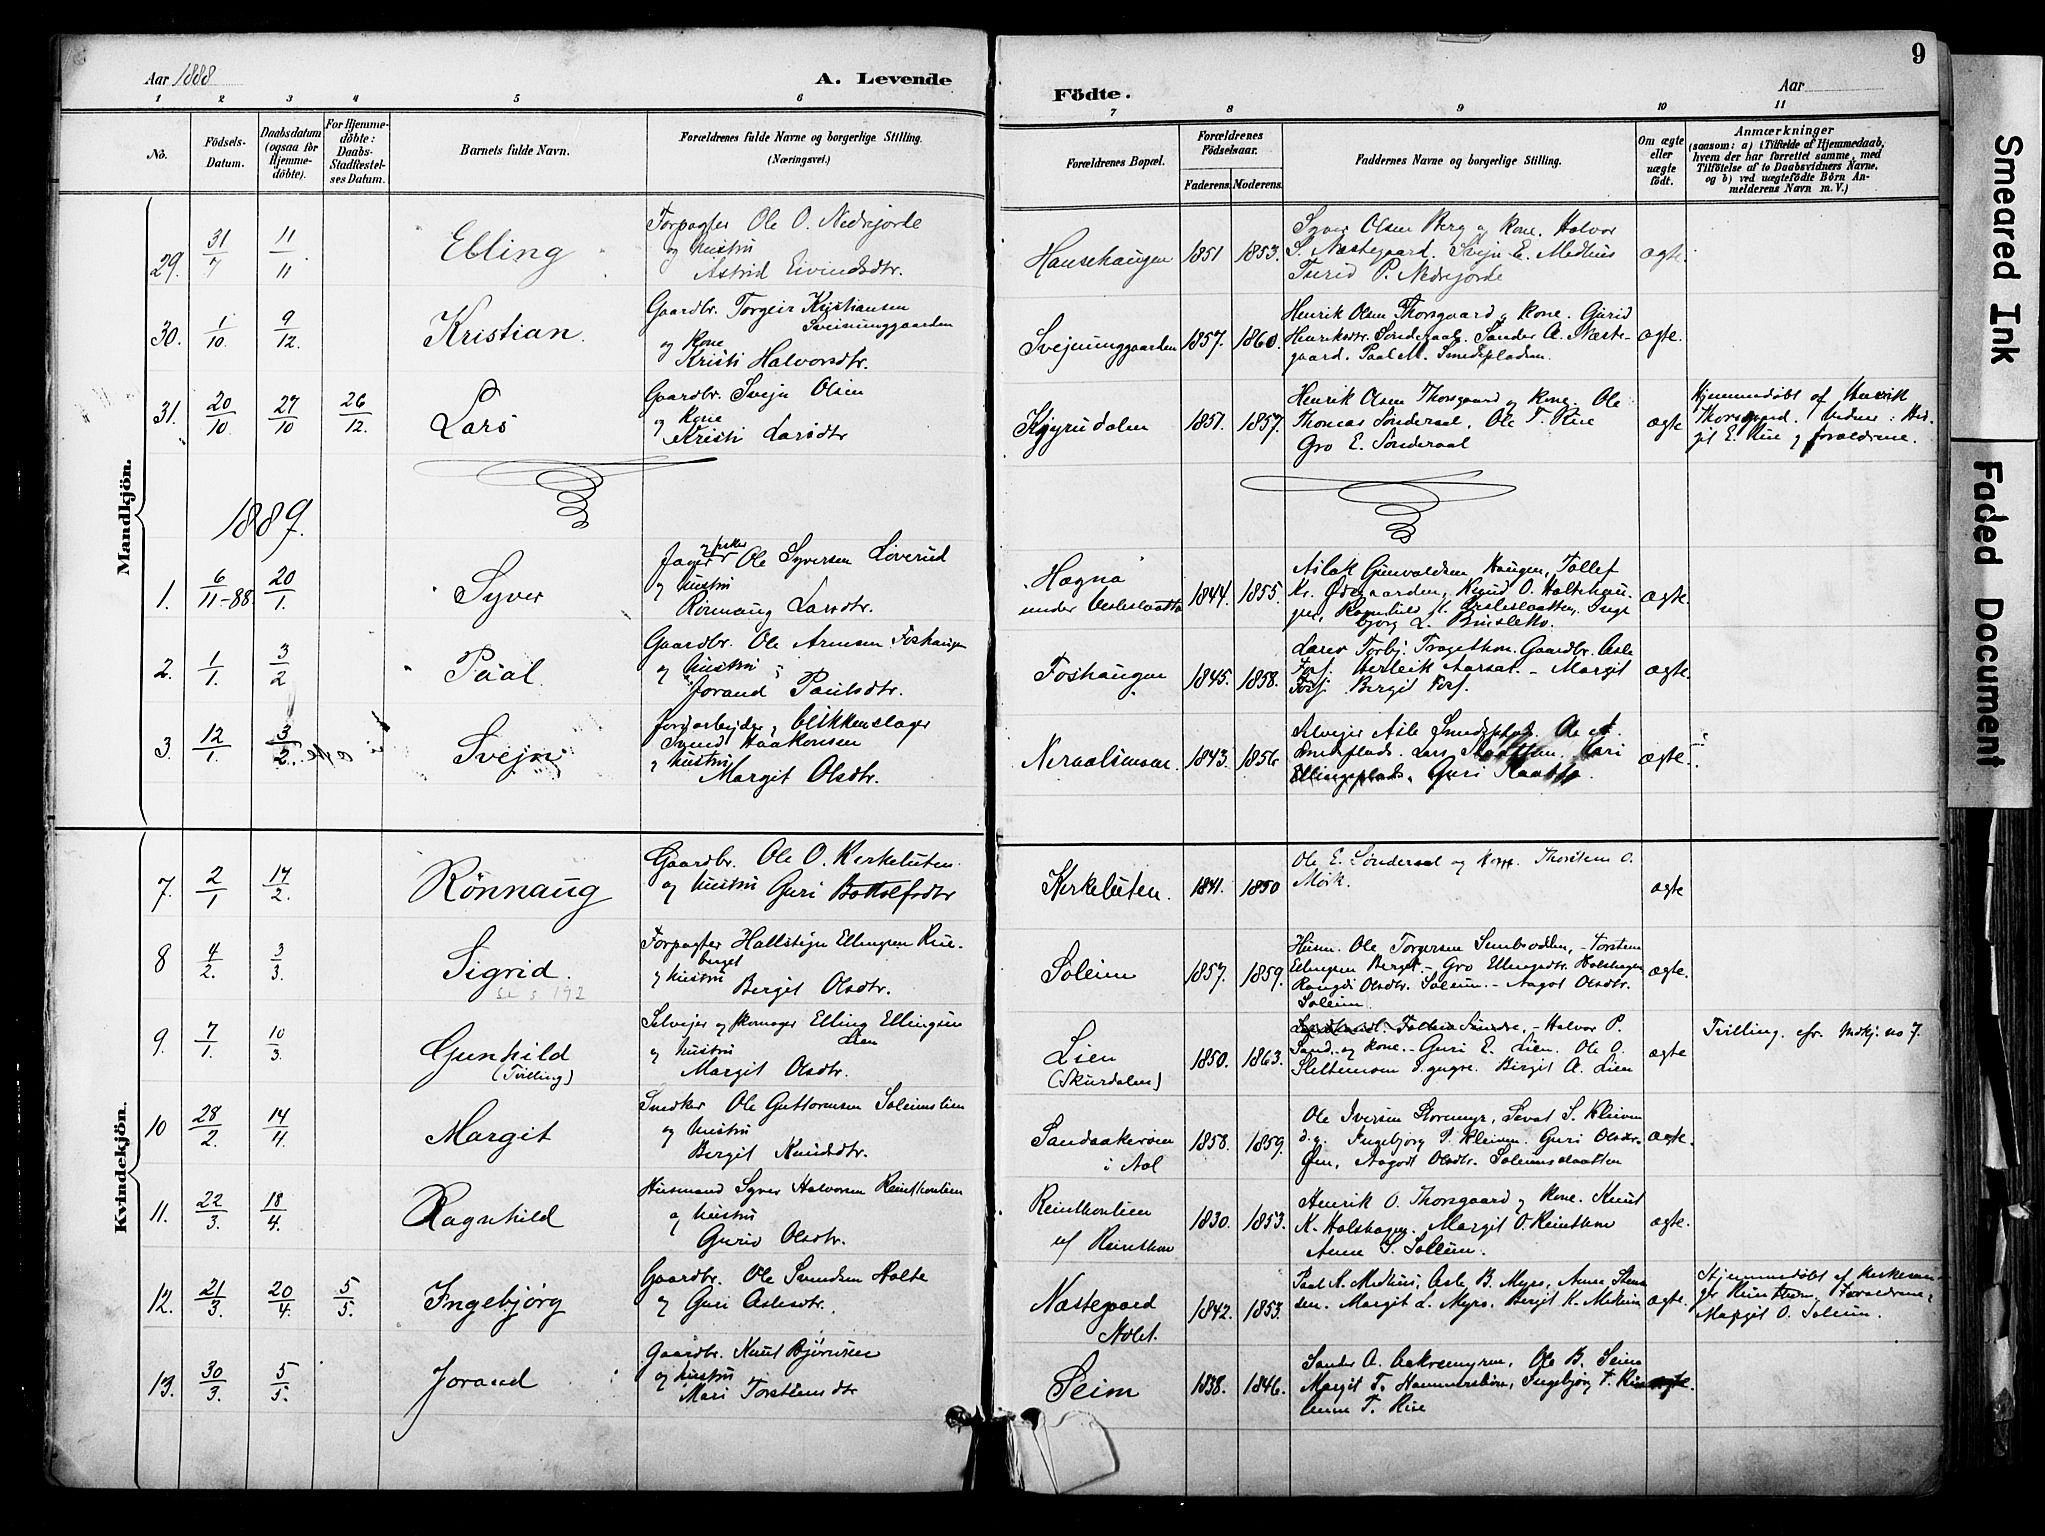 9
Aar 1888
A. Levende
Födte.
Aar
1 2 3 4 5 6 7 8 9 10 11
No.
Födsels-Datum.
Daabsdatum (ogsaa for Hjemme-döbte).
For Hjemme-döbte: Daabs-Stadfæstel-ses Datum.
Barnets fulde Navn.
Forældrenes fulde Navne og borgerlige Stilling. (Næringsvei.)
Forældrenes Bopæl.
Forældrenes Födselsaar.
Faderens. Moderens.
Faddernes Navne og borgerlige Stilling.
Om ægte eller uægte födt.
Anmærkninger
(saasom: a) i Tilfælde af Hjemmedaab, hvem der har forrettet samme, med Tilföielse af to Daabsvidners Navne, og b) ved uægtefödte Börn Anmelderens Navn m. V.)
Mandkjön.
29. 31/7 11/11 Elling
Forpagter Ole O. Nedrejorde
og hustru
Astrid Eivindsdtr.
Hansehaugen 1851 1853.
Syver Olsen Berg og kone. Halvor
S. Næstegaard. Svejn E. Medhus
Turid P. Nedrejorde
ægte.
30. 1/10. 9/12. Kristian.
Gaardbr. Torgeir Kristiansen
Sveinunggaarden
og kone
Kristi Halvorsdtr.
Svejnunggaarden 1857. 1860.
Henrik Olsen Thorsgaard og kone. Gurid
Henriksdtr. Sønderaal. Sander A. Næste-
gaard. Paal M. Smedspladsen.
ægte.
31. 20/10. 27/10 26/12. Lars
Gaardbr. Svejn Olsen
og kone
Kristi Larsdtr
1851. 1857.
Henrik Olsen Thorsgaard og kone. Ole
Thomas Sønderaal. Ole T. Rue
Gro E. Sønderaal
ægte
Hjemmedøbt af Henrik
Thorsgaard. Vidner: Ber-
git E. Rue og forældrene.
1889.
1. 6/11-88. 20/1. Syver
Jæger og fisker Ole Syversen Løverud
og hustru
Rønnaug Larsdtr.
Hagna
under Vesleslaatta
1844. 1855.
Aslak Gunvaldsen Haugen, Tollef
Kr. Ødegaarden, Knud O. Holtehau-
gen, Ragnhild H. Vesleslaatten, Inge
bjørg L.
ægte.
2. 1/1. 3/2 Paal.
Gaardbr. Ole Arnesen Foshaugen
og hustru
Jorand Paulsdtr.
Foshaugen 1845. 1858.
Gaardbr. Asle
Herleik Aarsat. – Margit
Bergit
ægte.
3. 12/1. 3/2. Svejn
Jordarbejder, blikkenslager
Svend Haakonsen
og hustru
Margit Olsdtr.
1843. 1856
Selvejer Asle Smedsplads.
Smedsplads. Lars Slaatten, Kari
Ellingsplads, Guri Slaatta
ægte.
Kvindekjön.
7. 2/1 17/2. Rönnaug
Gaardbr. Ole O. Kirkeluten.
og hustru
Guri Bottolfsdtr
Kirkeluten. 1841. 1850
Ole E. Sønderaal og kone. Thorstein O.
Moik.
ægte
8 4/2. 3/3. Sigrid.
se s 192
Forpagter Hallstejn Ellingsen Rue-
berget
og hustru
Bergit Olsdtr.
Soleim 1857. 1859.
Husm. Ole Torgersen – Torsten
Ellingsen Berget – Gro Ellingsdtr. Holshagen
Rangdi Olsdtr. Soleim. – Aagot Olsdtr.
Soleim
ægte.
9. 7/1. 10/3. Gunhild
(Tvilling)
Selvejer og skomager Elling Ellingsen
Lien
og hustru
Margit Olsdtr.
Lien
(Skurdalen)
1850. 1863.
Halvor P.
Sand og kone. – Guri E. Lien. Ole O.
Slettemoen Birgit A. Lien
ægte
Tvilling, cfr. Mdkj. no 7.
10 28/2. 14/4. Margit
Snedker Ole Guttormsen Soleimslien
og hustru
Bergit Knudsdtr.
Sandaakerøen
i Aal
1858. 1859.
Ole Iversen Stormyr, Sevat S. Kleiven
o.g. Ingebjørg P. Kleiven. Guri Olsdtr.
Øen, Aagodt Olsdtr. Soleimsslaatten
ægte.
11. 22/3. 18/4. Ragnhild
Husmand Syver Halvorsen Reintonlien
og hustru
Gurid Olsdtr.
Reintonlien
u/ Reinton
1830. 1853.
Henrik O. Thorsgaard og kone. Knut
K. Holshagen. Margit O. Reinton
Anne S. Soleim.
ægte.
12. 21/3. 20/4. 5/5. Ingebjørg
Gaardbr. Ole Svendsen Holte
og Guri Aslesdtr.
Næstegaard
Holet.
1842. 1853.
Paal K. Medhus, Asle B. Myro, Anne
Margit L. Myro, Bergit K. Medhus
ægte.
Hjemmedøbt af kirkesan-
ger Reinton, Forældrene,
Margit O. Soleim.
13. 30/3. 5/5. Jorand
Gaardbr. Knut Bjørnsen
og hustru
Mari Torsteinsdtr
Seim 1838. 1846.
Sander A. Aakremyren, Ole B. Seim
Margit T. Hammersbøen, Ingebjørg T. Rue
Anne T. Rue
ægte.
Smeared Ink
Faded Document